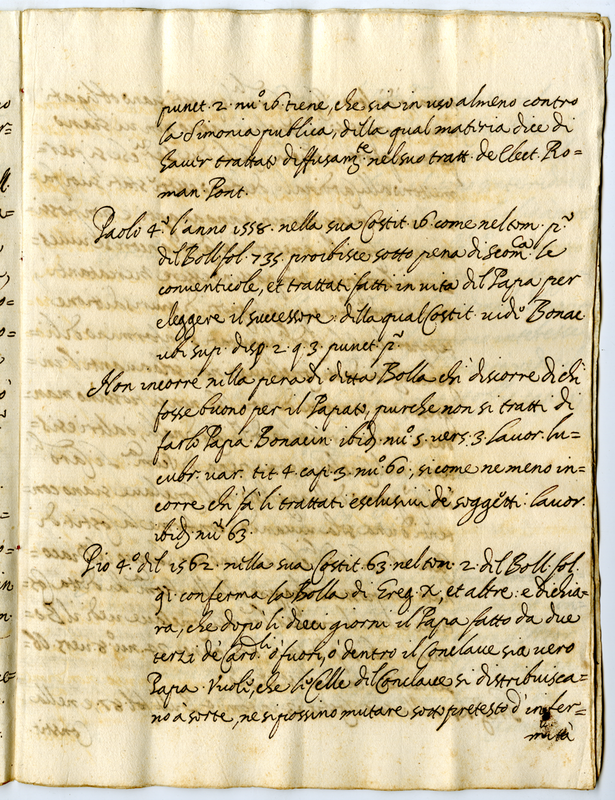 punct. 2. nu.º 16. tiene, che sia in uso almeno contro
la Simonia publica, della qual materia dice di
haver trattato diffusam.te nel suo tratt. de Elect. Ro=
man. Pont.
Paolo 4.º l'anno 1558. nella sua Costit. 16. come nel tom. p.º
del Boll. fol. 735. proibisce sotto pena di scom.ca le
conventicole, et trattati fatti in vita del Papa per
eleggere il successore. della qual Costit. vide Bonac
ubi sup. disp. 2. q. 3. punct. p.º
Non incorre nella pena di detta Bolla chi discorre di chi
fosse buono per il Papato, purche non si tratti di
farlo Papa. Bonacin. ibid. nu.º 5. vers. 3. Lavor. lu=
cubr. var. tit. 4. cap. 3. nu.º 60., si come ne meno in=
corre chi fà li trattati esclusivi de soggetti. Lavor.
ibid. nu.º 63.
Pio 4.º del 1562. nella sua Costit. 63. nel tom. 2. del Boll. fol.
91. conferma la Bolla di Greg. X, et altre: e dichia=
ra, che dopo li dieci giorni il Papa fatto da due
terzi de Card.li ò fuori, ò dentro il Conclave sia vero
Papa. Vuole, che le Celle del Conclave si distribuisca=
no à sorte, ne si possino mutare sotto pretesto d'infer=
mità